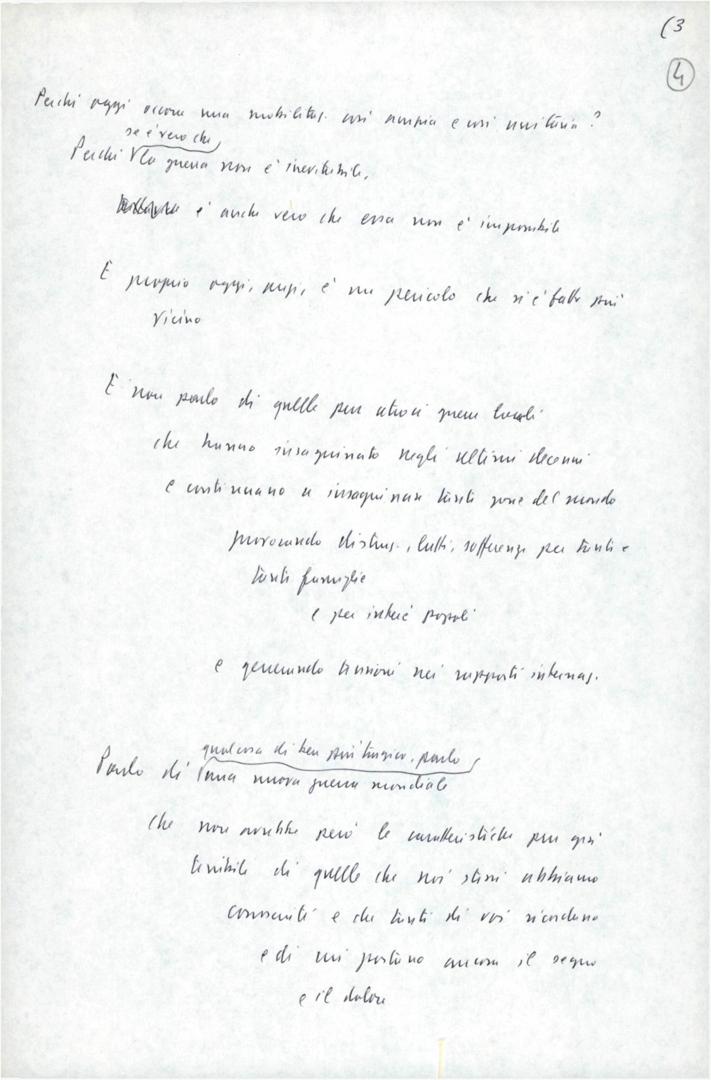 (3
4
Perché oggi occorre una mobilitaz. così ampia e così unitaria?
se è vero che
Perché la guerra non è inevitabile,
è anche vero che essa non è impossibile
E proprio oggi, anzi, è un pericolo che si è fatto più
vicino
E non parlo di quelle pur atroci guerre locali
che hanno insaguinato negli ultimi decenni
e continuano a insaguinare tante zone del mondo
provocando distruz., lutti, sofferenze per tanti e
tanti famiglie
e per interi popoli
e generando tensioni nei rapporti internaz.
qualcosa di ben più tragico, parlo
Parlo di una nuova guerra mondiale
che non avrebbe però le caratteristiche pur già
terribili di quelle che noi stessi abbiamo
conosciuto e che tanti di voi ricordano
e di cui portano ancora il segno
e il dolore